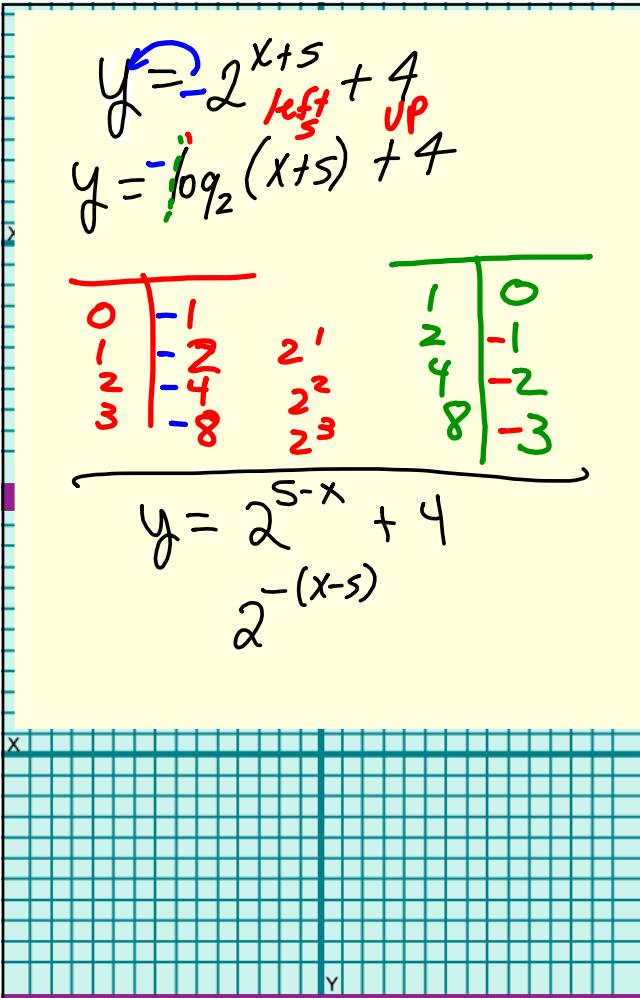 y = -2^(x+5) + 4
left 5 up
y = -log₂(x+5) + 4
X
0 | -1
1 | -2 2^1
2 | -4 2^2
3 | -8 2^3
1 | 0
2 | -1
4 | -2
8 | -3
y = 2^(5-x) + 4
2^(-(x-5))
X
Y